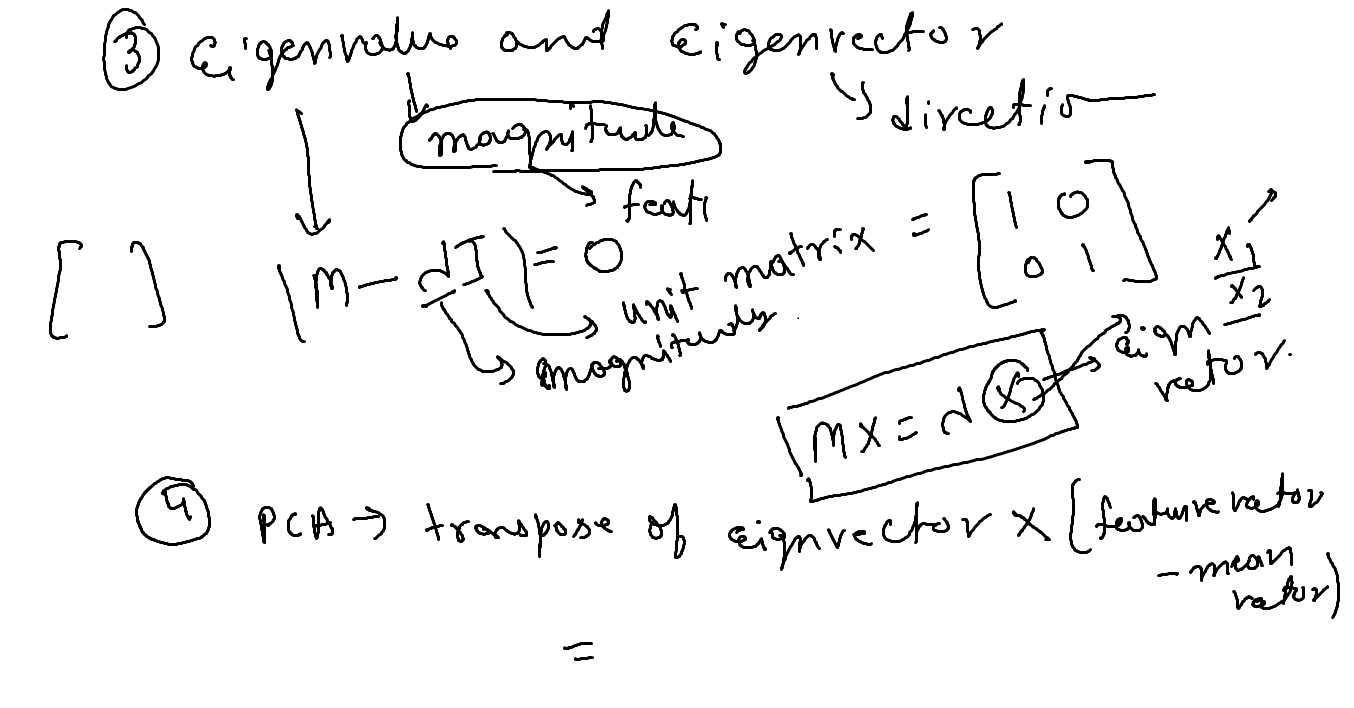 ③ Eigenvalue and Eigenvector
magnitude
direction
feat
[ ] |M - λI| = 0
unit matrix = [1 0
0 1]
magnitude
x1
x2
MX = λX
eign vector.
④ PCA → transpose of eignvector × (feature vector
- mean
vector)
=